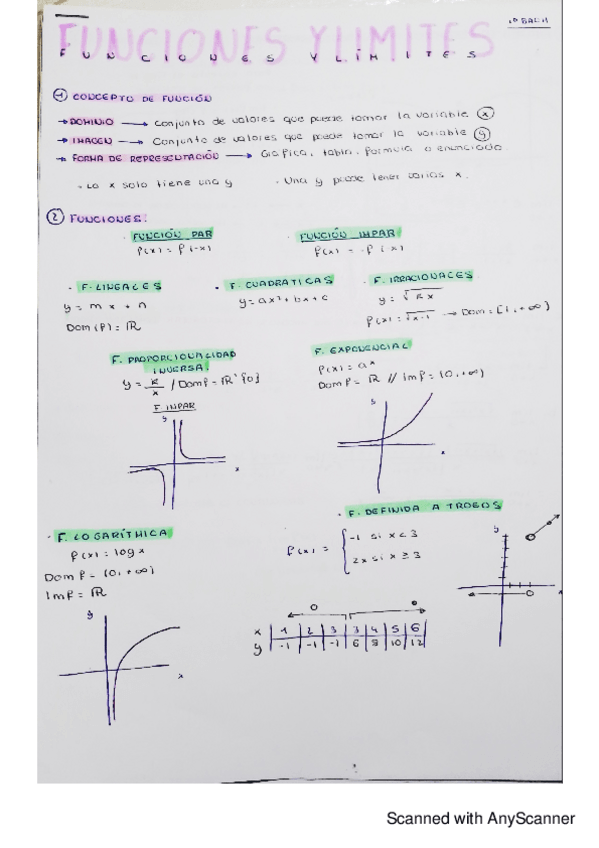 1º BACH
FUNCIONES Y LIMITES
FUNCIONES Y LÍMITES
1 CONCEPTO DE FUNCIÓN
→ DOMINIO → Conjunto de valores que puede tomar la variable x
→ IMAGEN → Conjunto de valores que puede tomar la variable y
→ FORMA DE REPRESENTACIÓN → Gráfica, tabla, fórmula o enunciado.
· La x solo tiene una y · Una y puede tener varias x.
2 FUNCIONES:
· FUNCIÓN PAR FUNCIÓN IMPAR
f(x) = f(-x) f(x) = -f(-x)
· F. LINEALES · F. CUADRÁTICAS · F. IRRACIONALES
y = mx + n y = ax² + bx + c y = √kx
Dom(f) = ℝ f(x) = √x-1 → Dom = [1, +∞)
F. PROPORCIONALIDAD INVERSA: F. EXPONENCIAL
y = k/x / Dom f = ℝ - {0} f(x) = a^x
F. IMPAR Dom f = ℝ // Im f = (0, +∞)
y
x
x
· F. LOGARÍTMICA · F. DEFINIDA A TROZOS
f(x) = log x f(x) = { -1 si x < 3
Dom f = (0, +∞) 2x si x ≥ 3
Im f = ℝ
y
x
x 1 2 3 3 4 5 6
y -1 -1 -1 6 8 10 12
Scanned with AnyScanner